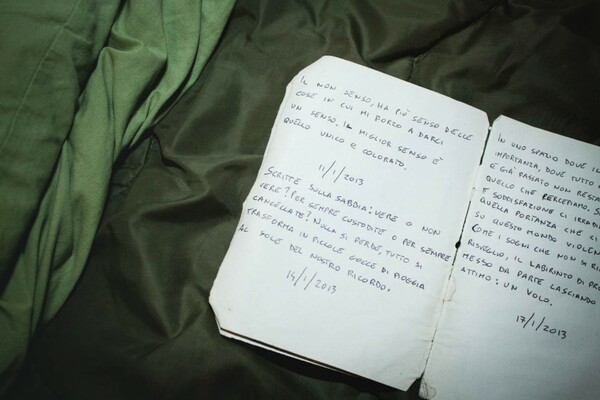 IL NON SENSO, HA PIÙ SENSO DELLE
COSE IN CUI MI FORZO A DARCI
UN SENSO. IL MIGLIOR SENSO E'
QUELLO UNICO E COLORATO.
11/1/2013
SCRITTE SULLA SABBIA: VERE O NON
VERE? PER SEMPRE CUSTODITE O PER SEMPRE
CANCELLATE? NULLA SI PERDE, TUTTO SI
TRASFORMA IN PICCOLE GOCCE DI PIOGGIA
AL SOLE DEL NOSTRO RICORDO.
14/1/2013
IN UNO SPAZIO DOVE IL
IMPORTANZA, DOVE TUTTO
E GIÀ PASSATO NON RESTA
QUELLO CHE PERCEPIAMO. S
E SODDISFAZIONE CI IRRADI
QUELLA PORTANZA CHE CI
SU QUESTO MONDO VIOLEN
COME I SOGNI CHE NON SI RI
RISVEGLIO, IL LABIRINTO DI PR
MESSO DA PARTE LASCIANDO
ATTIMO: UN VOLO.
17/1/2013